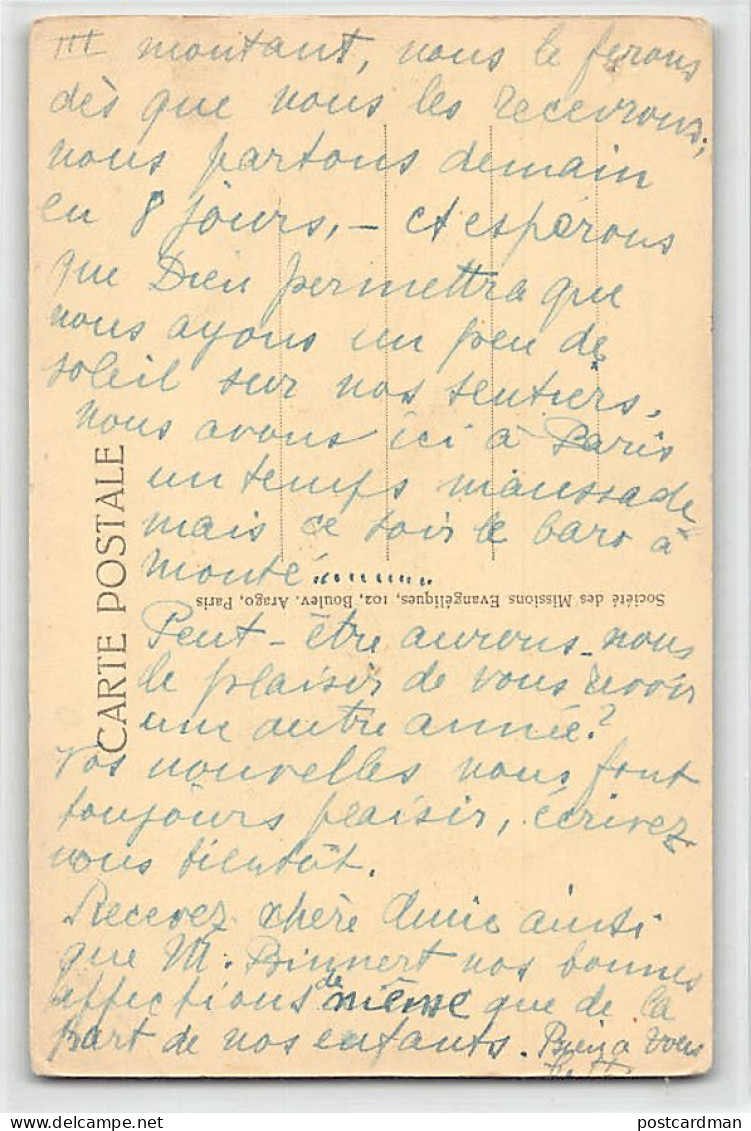 III montant, nous le ferons
dès que nous les recevrons,
nous partons demain
en 8 jours, – et espérons
que Dieu permettra que
nous ayons un peu de
soleil sur nos sentiers.
Nous avons ici à Paris
un temps maussade
mais ce soir le baro à
monté.......
Société des Missions Evangéliques, 102, Boulev. Arago, Paris
CARTE POSTALE
Peut-être aurons-nous
le plaisir de vous revoir
une autre année?
Vos nouvelles nous font
toujours plaisir, écrivez
nous bientôt.
Recevez chère Amie ainsi
que M. Binnert nos bonnes
affections de même que de la
part de nos enfants. Bien à vous
postcardman